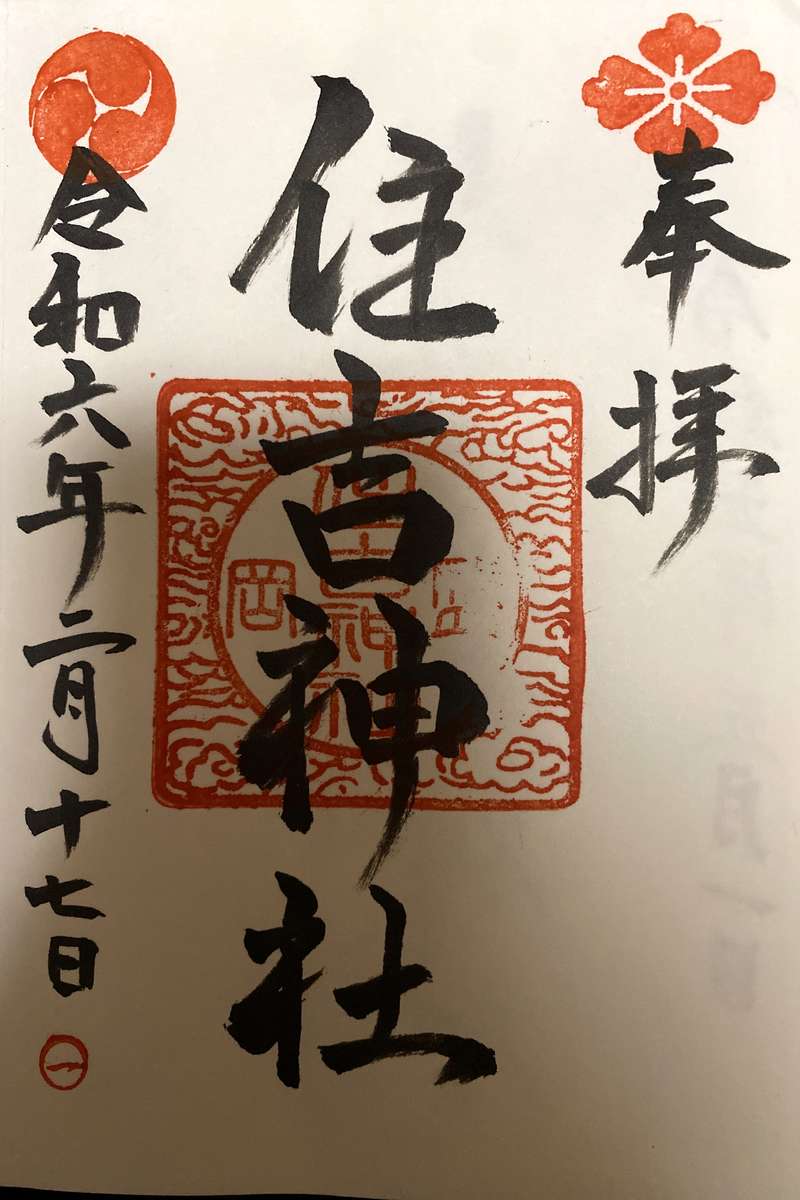 奉拝
住吉神社
岡
令和六年二月十七日
一